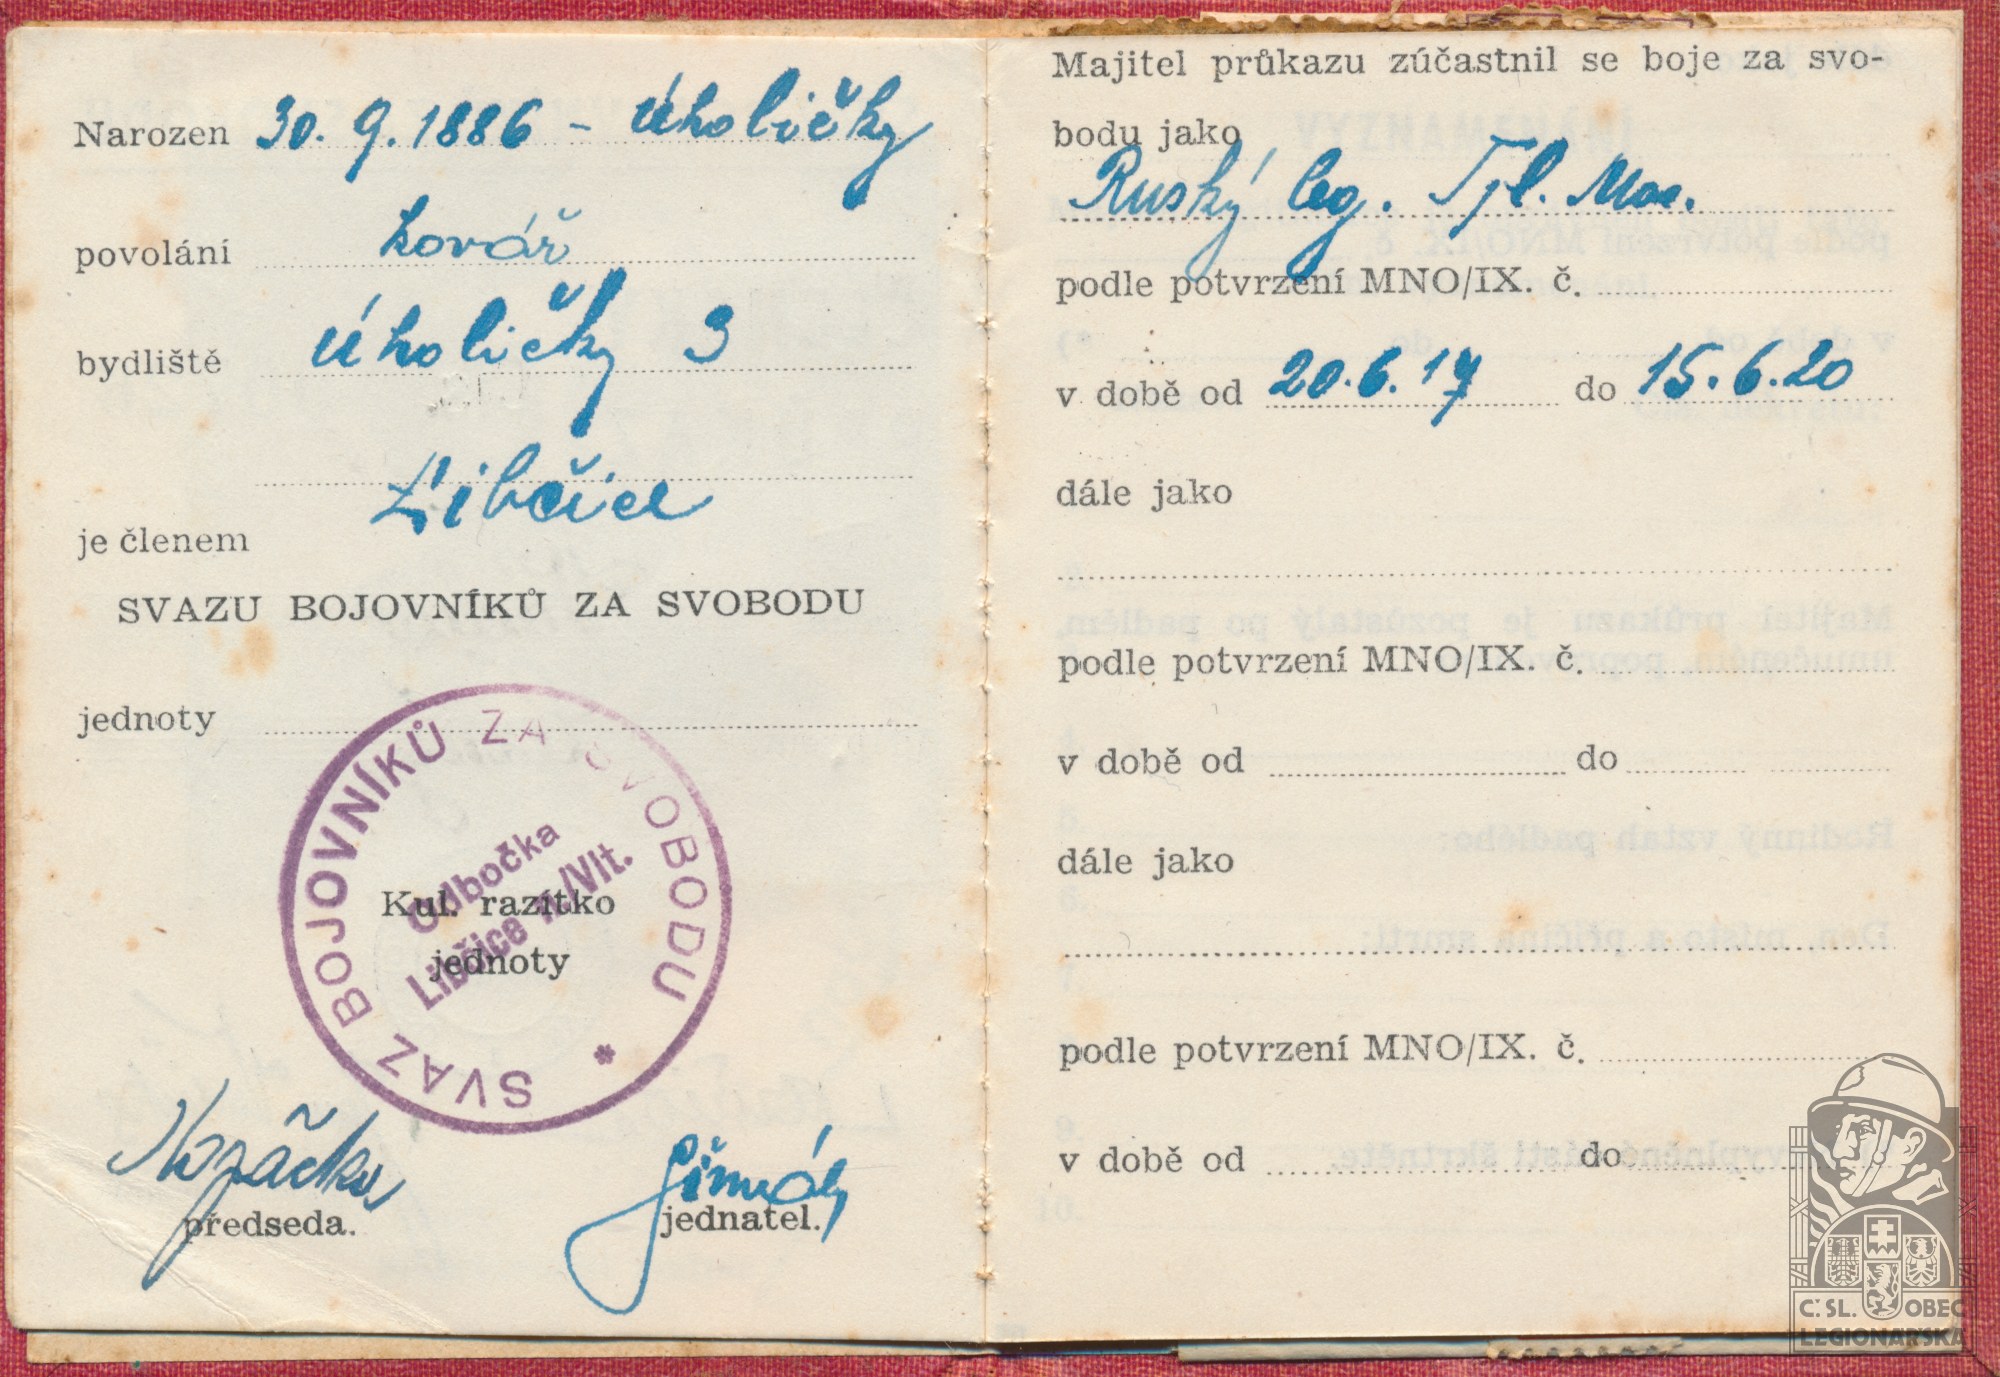 Narozen 30. 9. 1886 - Úholičky
povolání kovář
bydliště Úholičky 3
Libčice
je členem
SVAZU BOJOVNÍKŮ ZA SVOBODU
jednoty
SVAZ BOJOVNÍKŮ ZA SVOBODU *
Odbočka
Libčice n./Vlt.
Kul. razítko
jednoty
předseda.
jednatel.
Majitel průkazu zúčastnil se boje za svo-
bodu jako
Ruský leg.
podle potvrzení MNO/IX. č.
v době od 20.6.17 do 15.6.20
dále jako
podle potvrzení MNO/IX. č.
v době od do
dále jako
podle potvrzení MNO/IX. č.
v době od do
Č.SL. OBEC
LEGIONÁŘSKÁ